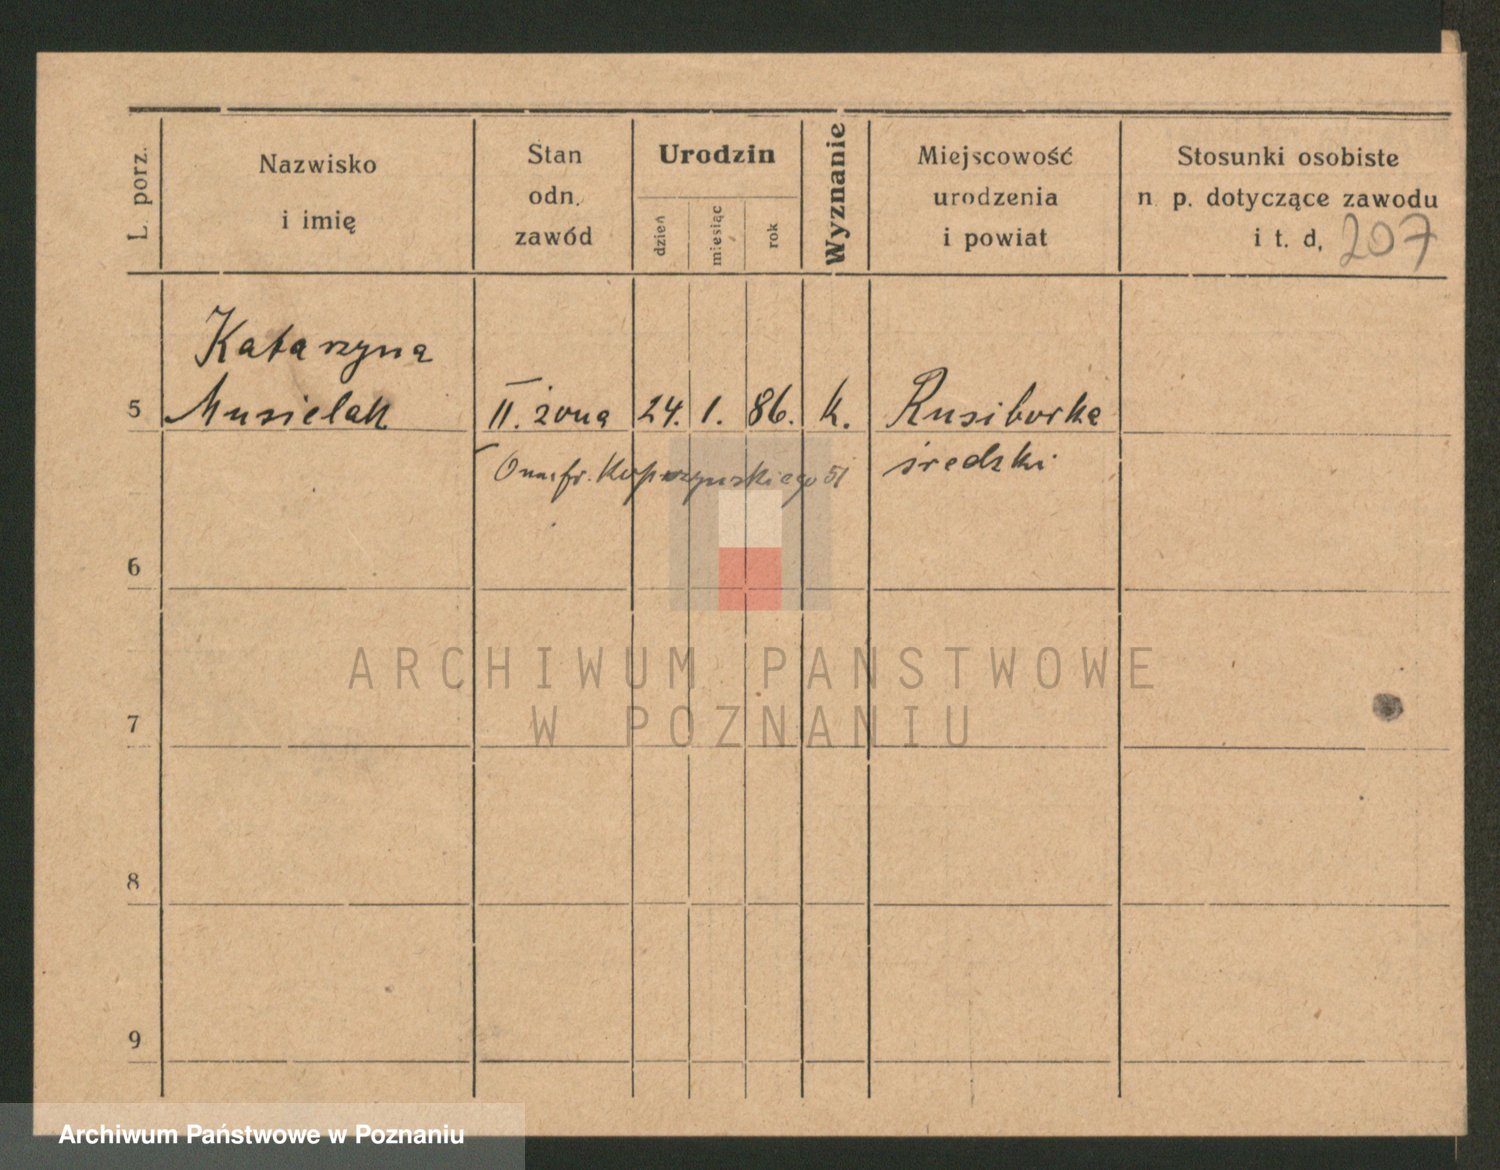 L. porz.
Nazwisko
i imię
Stan
odn.
zawód
Urodzin
dzień
miesiąc
rok
Wyznanie
Miejscowość
urodzenia
i powiat
Stosunki osobiste
n p. dotyczące zawodu
i t. d,
207
Katarzyna
5 Musielak II. żona 24. 1. 86. k. Rusiborka
średzki
51
6
7
8
9
ARCHIWUM PAŃSTWOWE
W POZNANIU
Archiwum Państwowe w Poznaniu